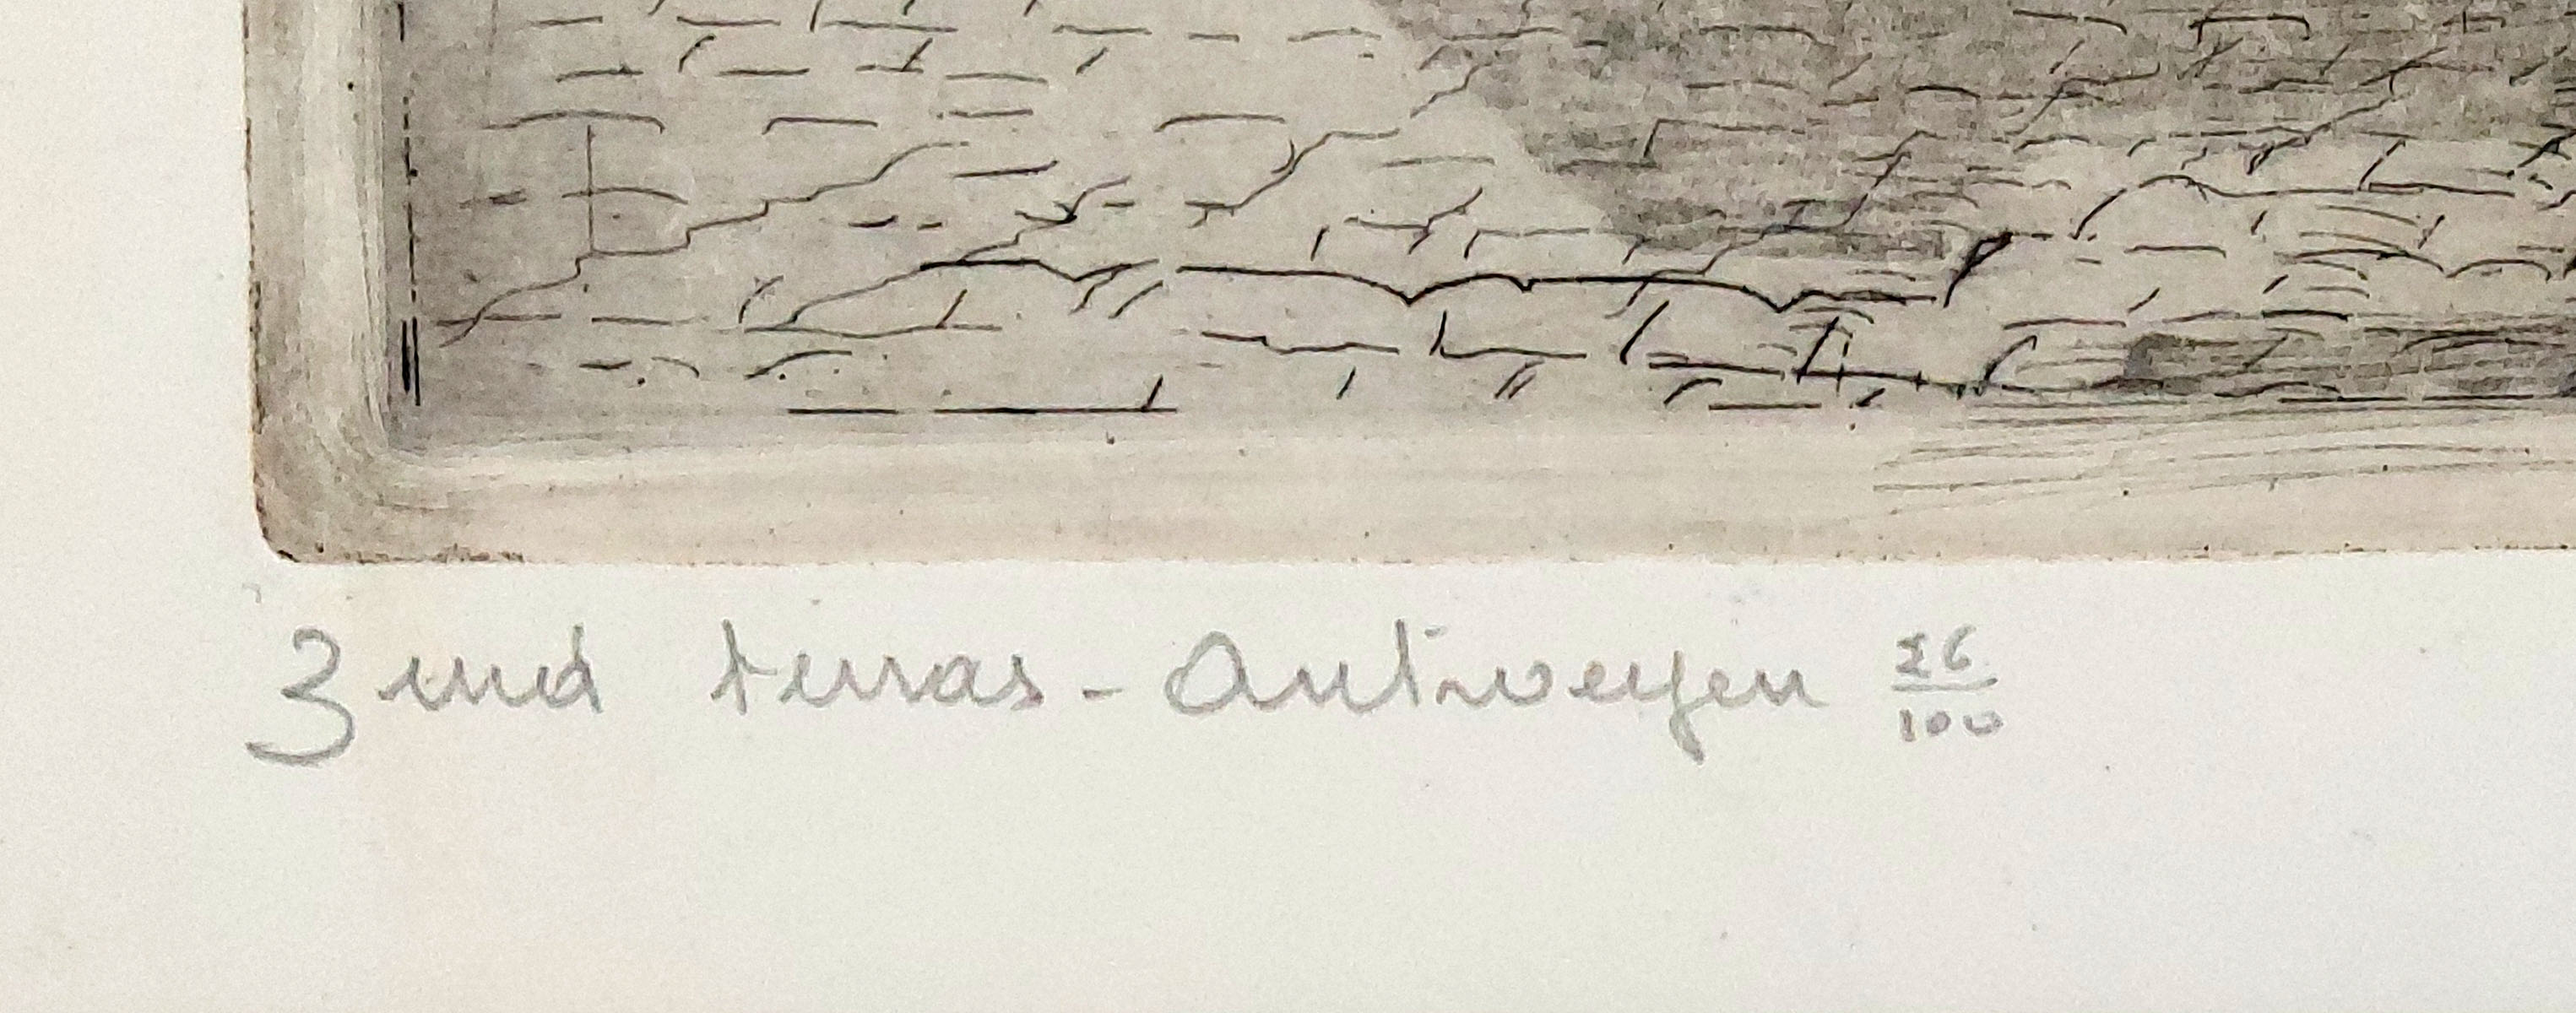 Zuid terras - Antwerpen 26/100